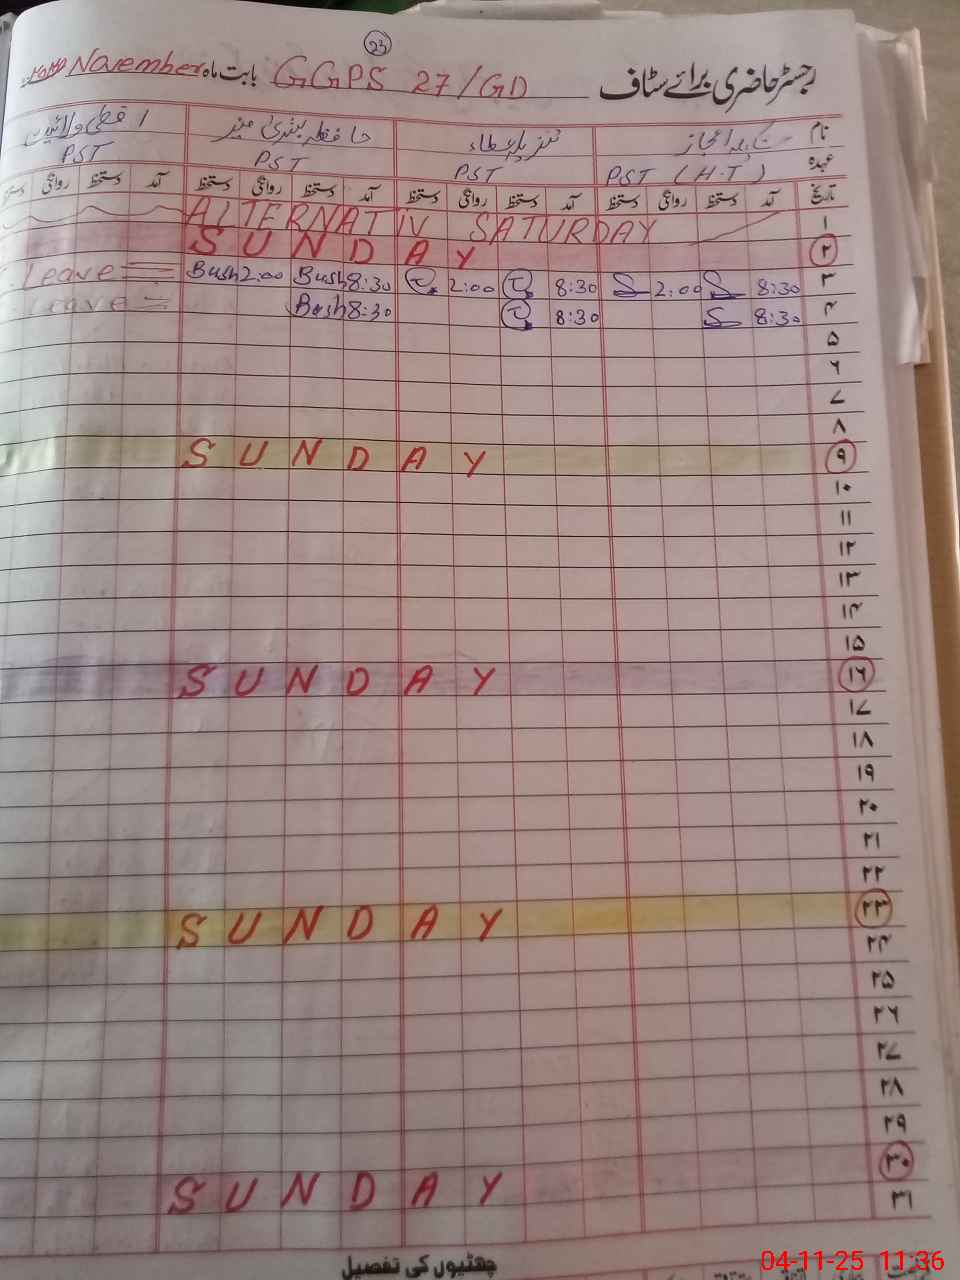 23
رجسٹر حاضری برائے سٹاف GGPS 27/GD بابت ماہ November
نام حافظہ بشریٰ
عہدہ PST (H.T) PST PST PST
تاریخ آمد دستخط روانگی دستخط آمد دستخط روانگی دستخط آمد دستخط روانگی دستخط آمد دستخط روانگی دستخط
۱ ALTERNATIV SATURDAY
۲ SUNDAY
۳ 8:30 2:00 8:30 2:00 8:30 Bush 2:00 Bush Leave
۴ 8:30 8:30 8:30 Bush Leave
۵
۶
۷
۸
۹ SUNDAY
۱۰
۱۱
۱۲
۱۳
۱۴
۱۵
۱۶ SUNDAY
۱۷
۱۸
۱۹
۲۰
۲۱
۲۲
۲۳ SUNDAY
۲۴
۲۵
۲۶
۲۷
۲۸
۲۹
۳۰ SUNDAY
۳۱
چھٹیوں کی تفصیل
04-11-25 11:36